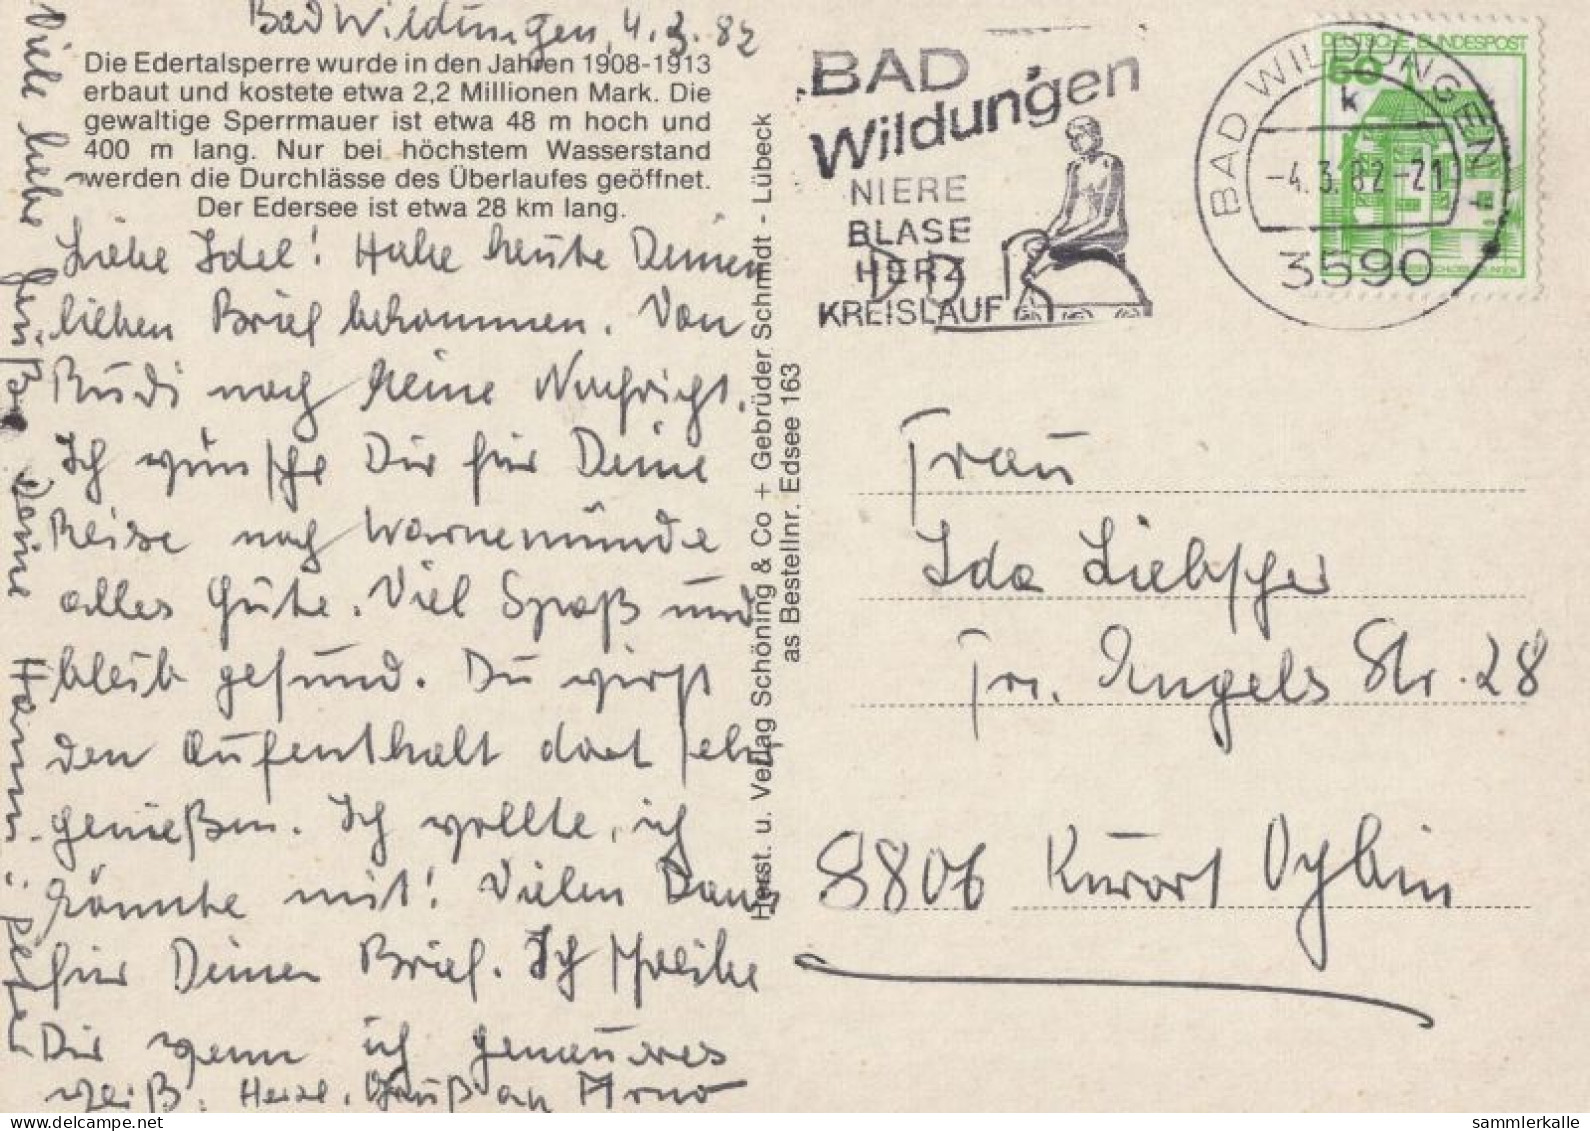 Bad Wildungen, 4.3.82
Die Edertalsperre wurde in den Jahren 1908-1913
erbaut und kostete etwa 2,2 Millionen Mark. Die
gewaltige Sperrmauer ist etwa 48 m hoch und
400 m lang. Nur bei höchstem Wasserstand
werden die Durchlässe des Überlaufes geöffnet.
Der Edersee ist etwa 28 km lang.
Liebe Idel! Habe heute Deinen
lieben Brief bekommen. Von
Rudi noch keine Nachricht.
Ich wünsche Dir für Deine
Reise nach Warnemünde
alles Gute. Viel Spaß und
bleib gesund. Du wirst
den Aufenthalt dort sehr
genießen. Ich wollte, ich
könnte mit! Vielen Dank
für Deinen Brief. Ich schreibe
Dir wenn ich genaueres
weiß. Herzl. Gruß an Arno
Viele liebe Grüße Deine Hanni
Herst. u. Verlag Schöning & Co + Gebrüder Schmidt - Lübeck
as Bestellnr. Edsee 163
BAD
Wildungen
NIERE
BLASE
HERZ
KREISLAUF
BAD WILDUNGEN 1
k
-4.3.82-21
3590
DEUTSCHE BUNDESPOST
50
Frau
Ida Liebscher
Fr. Engels Str. 28
8806 Kurort Oybin
sammlerkalle